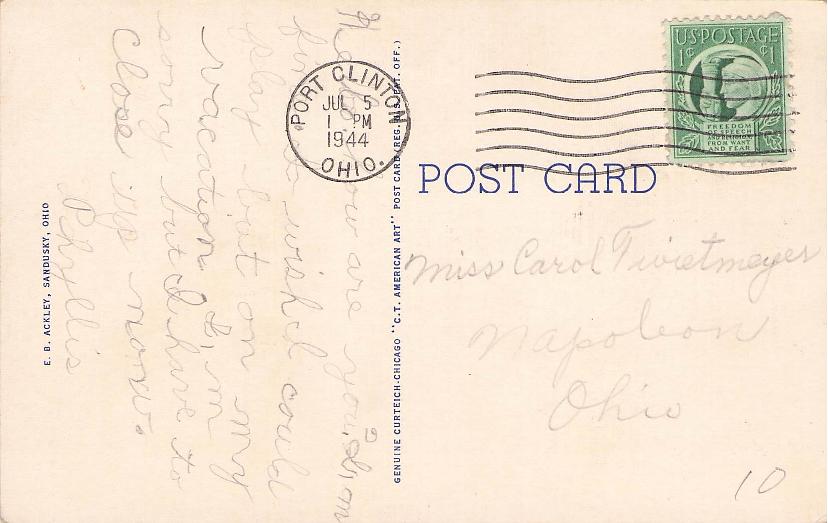 Hello How are you? I,m
fine. wish I could
play but on my
vacation I,m
sorry but I have to
Close up now.
Phyllis
E. B. ACKLEY, SANDUSKY, OHIO
GENUINE CURTEICH-CHICAGO "C.T. AMERICAN ART" POST CARD (REG. U.S. PAT. OFF.)
PORT CLINTON
JUL 5
1 PM
1944
OHIO.
U.S. POSTAGE
1¢ ¢1
FREEDOM
OF SPEECH
AND RELIGION,
FROM WANT
AND FEAR
POST CARD
Miss Carol Twietmeyer
Napoleon
Ohio
10